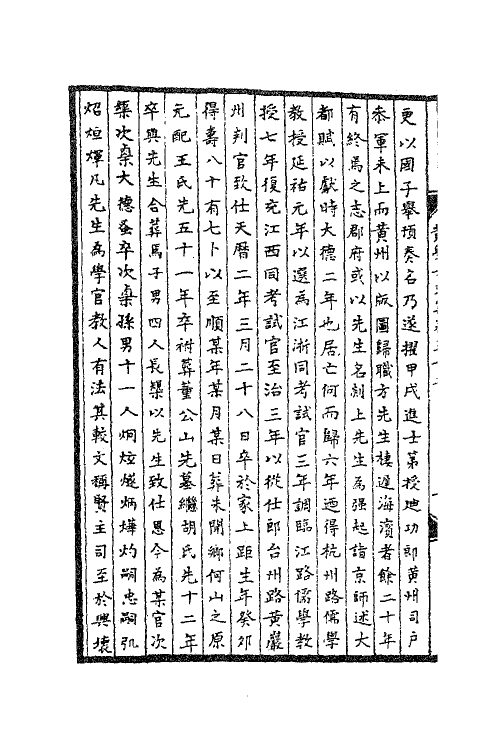 更以國子舉預奏名乃遂擢甲戌進士第授迪功郎黃州司户
叅軍未上而黃州以版圖歸職方先生棲遲海濱者餘二十年
有終焉之志郡府或以先生名剡上先生為强起詣京師述大
都賦以獻時大德二年也居亡何而歸六年廼得杭州路儒學
教授延祐元年以選為江浙同考試官三年調臨江路儒學教
授七年復充江西同考試官至治三年以從仕郎台州路黃巖
州判官致仕天曆二年三月二十八日卒於家上距生年癸卯
得壽八十有七卜以至順某年某月某日葬朱開鄉何山之原
元配王氏先五十一年卒祔葬董公山先墓繼胡氏先十二年
卒與先生合葬焉子男四人長㮚以先生致仕恩今為某官次
槩次桌大德蚤卒次橐孫男十一人炯炫熾炳燁灼嗣忠嗣弘
炤烜煇凡先生為學官教人有法其較文稱賢主司至於興壞